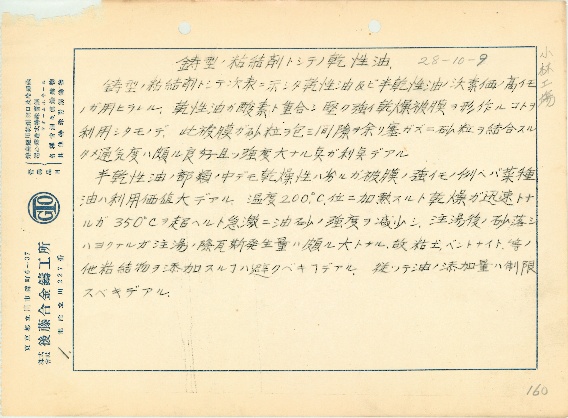 鋳型ノ粘結剤トシテノ乾性油 28-10-9
鋳型ノ粘結剤トシテ次表ニ示シタ乾性油及ビ半乾性油ノ沃素価ノ高イモ
ノガ用ヒラレル、乾性油ガ酸素ト重合シ堅ク強イ乾燥被膜ヲ形作ルコトヲ
利用シタモノデ、此被膜ガ砂粒ヲ包ミ間隙ヲ余リ塞ガズニ砂粒ヲ結合スル
タメ通気度ハ頗ル良好且ツ強度大ナル点ガ利点デアル
半乾性油ノ部類ノ中デモ乾燥性ハ劣ルガ被膜ノ強イモノ例ヘバ菜種
油ハ利用価値大デアル、温度200℃位ニ加熱スルト乾燥ガ迅速トナ
ルガ350℃ヲ超ヘルト急激ニ油砂ノ強度ヲ減少シ、注湯後ノ砂落シ
ハヨクナルガ注湯ノ際瓦斯発生量ハ頗ル大トナル、故粘土ベントナイト、等ノ
他粘結物ヲ添加スルコトハ避クベキコデアル、従ッテ油ノ添加量ハ制限
スベキデアル、
小林工場
営業品目
GTO
株式会社 後藤合金鑄工所
電話立川227番
160